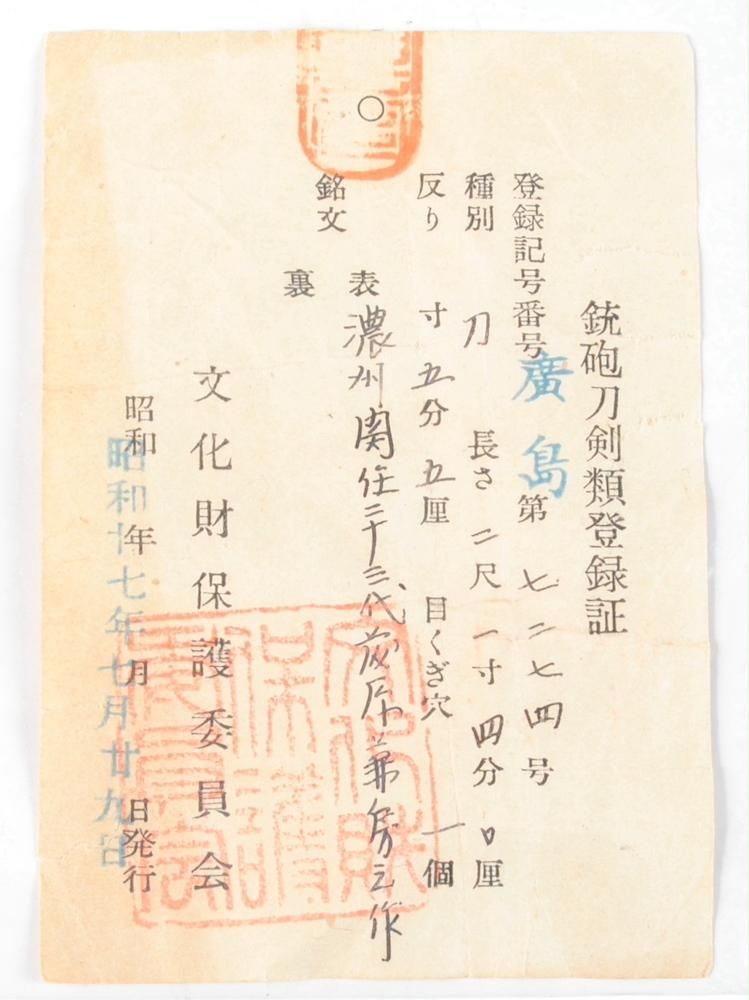 銃砲刀剣類登録証
登録記号番号 廣島 第 七二七四 号
種別 刀 長さ 二尺 一寸 四分 〇厘
反り 寸 五分 五厘 目くぎ穴 一個
銘文 表 濃州関住二十三代藤原兼房之作
裏
文化財保護委員会
昭和 年 月 日発行
昭和廿七年七月廿九日
文化財保護委員会